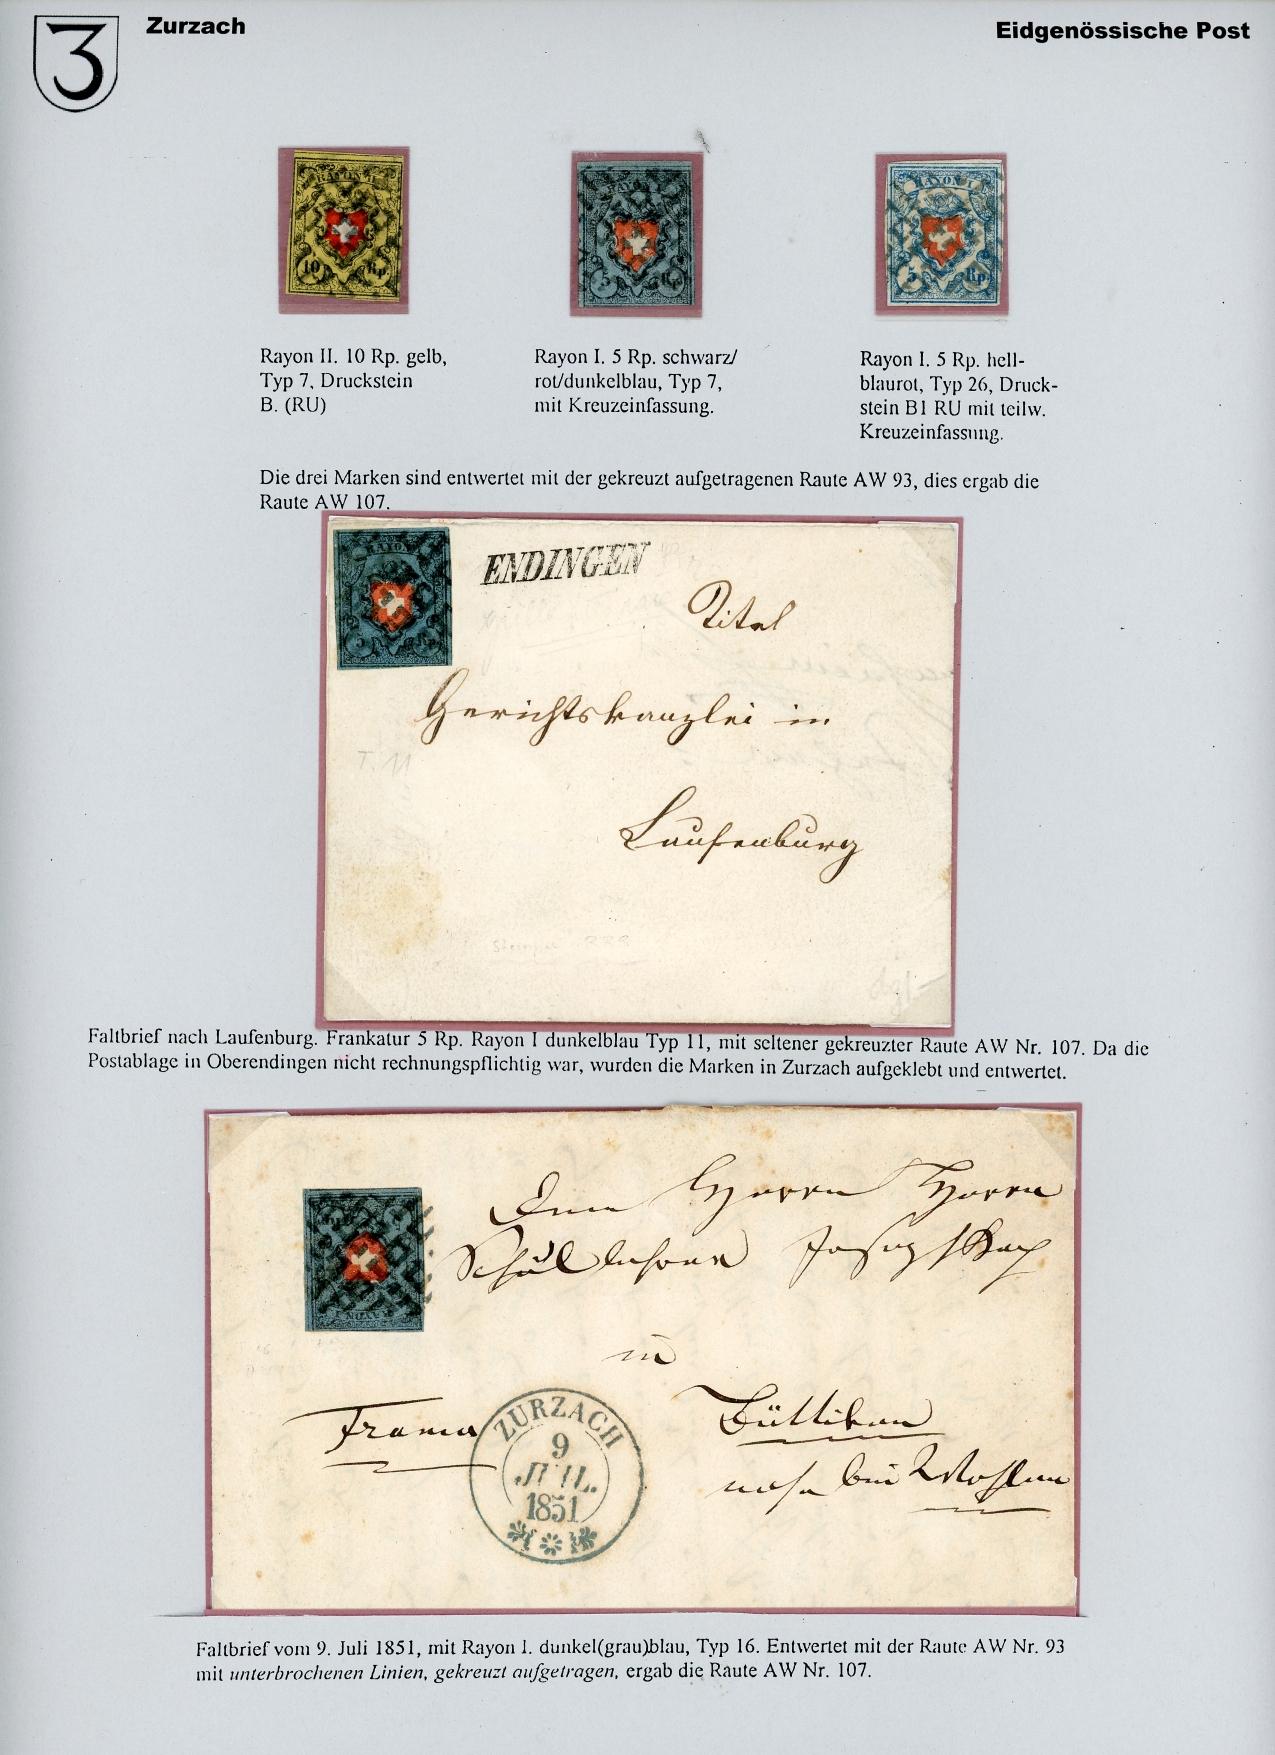 Zurzach
Eidgenössische Post
RAYON II
10 Rp.
RAYON I
5 Rp.
RAYON I
5 Rp.
Rayon II. 10 Rp. gelb,
Typ 7, Druckstein
B. (RU)
Rayon I. 5 Rp. schwarz/
rot/dunkelblau, Typ 7,
mit Kreuzeinfassung.
Rayon I. 5 Rp. hell-
blaurot, Typ 26, Druck-
stein B1 RU mit teilw.
Kreuzeinfassung.
Die drei Marken sind entwertet mit der gekreuzt aufgetragenen Raute AW 93, dies ergab die
Raute AW 107.
RAYON I
5 Rp.
ENDINGEN
Titel
Gerichtskanzlei in
T. 11
Laufenburg
Faltbrief nach Laufenburg. Frankatur 5 Rp. Rayon I dunkelblau Typ 11, mit seltener gekreuzter Raute AW Nr. 107. Da die
Postablage in Oberendingen nicht rechnungspflichtig war, wurden die Marken in Zurzach aufgeklebt und entwertet.
Dem Herrn Herrn
Schullehrer Joseph
RAYON I
in
Franco
Büttikon
nahe bei Wohlen
ZURZACH
9
JUIL.
1851
Faltbrief vom 9. Juli 1851, mit Rayon I. dunkel(grau)blau, Typ 16. Entwertet mit der Raute AW Nr. 93
mit unterbrochenen Linien, gekreuzt aufgetragen, ergab die Raute AW Nr. 107.